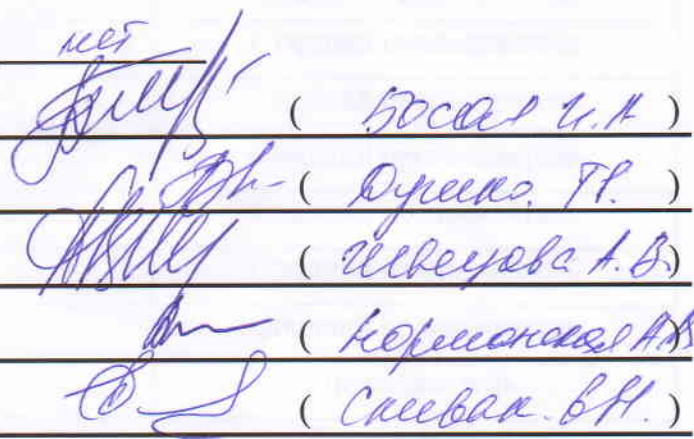 нет
( Босая И.А )
( Душко. Т.Р. )
( Шевцова А.В. )
( Нормонская А.В )
( Спивак. В.Н. )